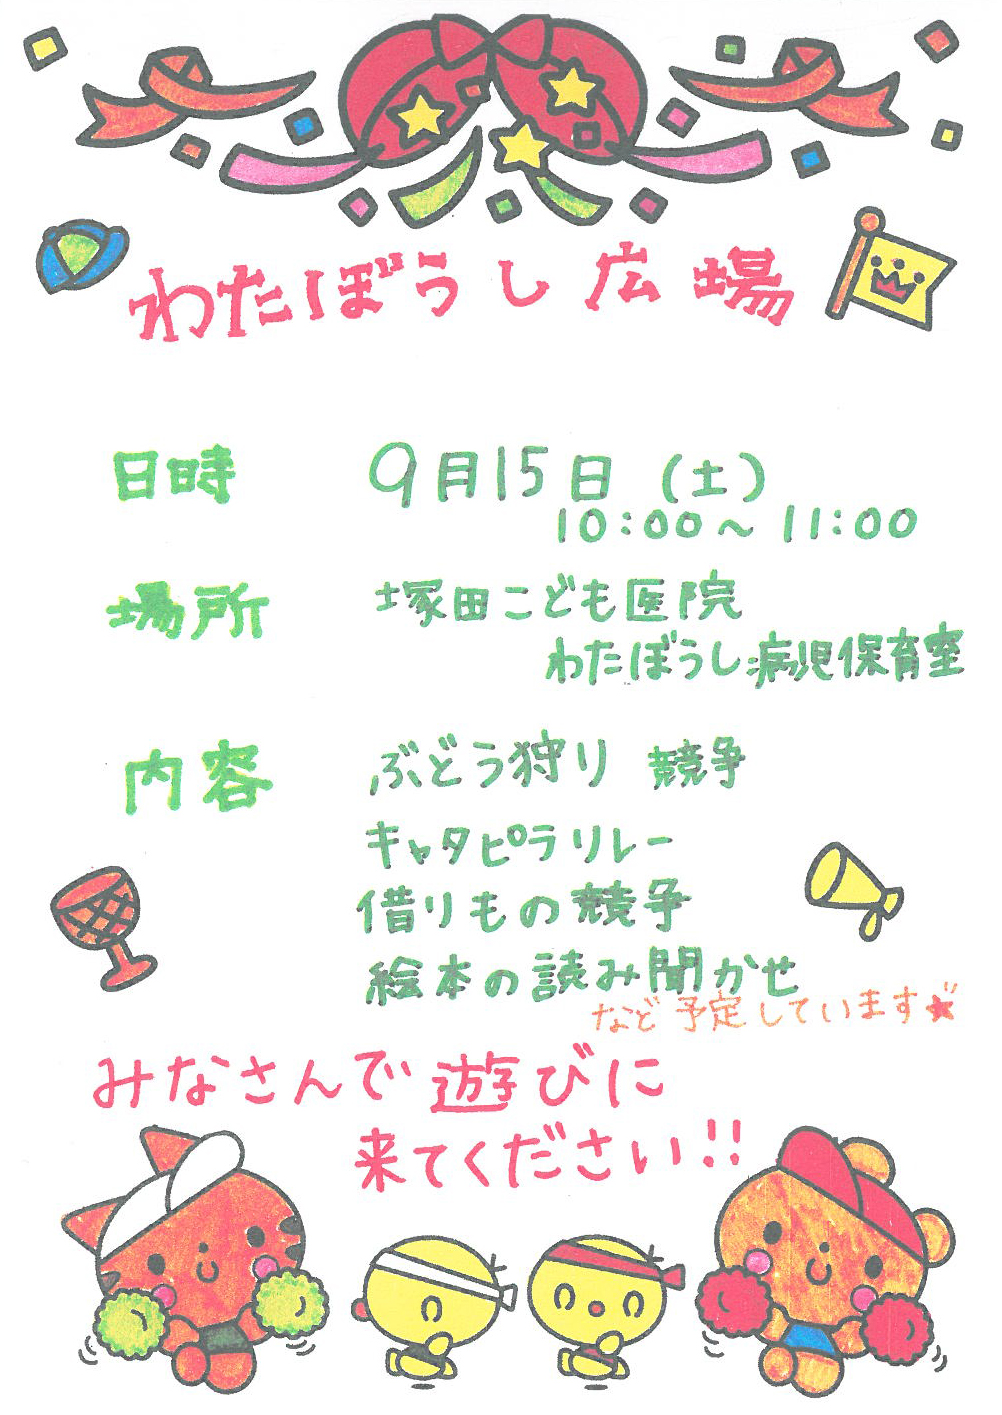 わたぼうし広場
日時 9月15日(土)
10:00~11:00
場所 塚田こども医院
わたぼうし病児保育室
内容 ぶどう狩り競争
キャタピラリレー
借りもの競争
絵本の読み聞かせ
など予定しています★
みなさんで遊びに
来てください!!